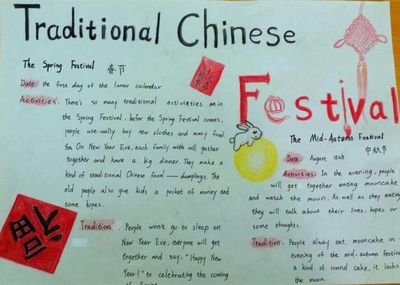 Traditional Chinese
Festival
The Spring Festival 春节
Date: the first day of the lunar calendar
Activities: There's so many traditional activities on in
the Spring Festival. before the Spring Festival comes,
people use-ually buy new clothes and many food
for. On New Year Eve, each family with will gather
together and have a big dinner. They make a
kind of traditional Chinese food —— dumplings. The
old people also give kids a pocket of money and
some hopes.
Tradition: People won't go to sleep on
New Year Eve. everyone will get
together and say, "Happy New
Year!" to celebrating the coming
of Spring
福
The Mid-Autumn Festival
中秋节
Date: August 15th
Activities: In the evening, people
will get together eating mooncake
and watch the moon. As well as they eating
they will talk about their lives, hopes or
some thoughts.
Tradition: People alway eat mooncake in
evening of the mid-autumn festival
a kind of round cake, it looks
the moon.